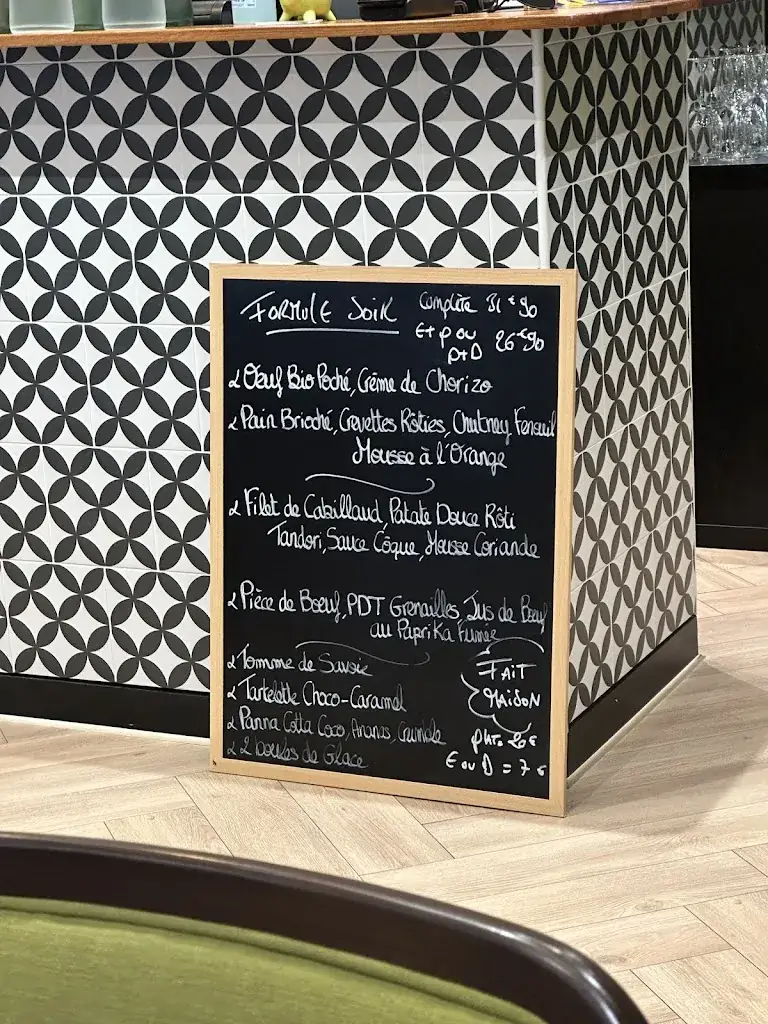 FORMULE SOIR
Complète 31€90
E+P ou
P+D 26€90
Œuf Bio Poché, Crème de Chorizo
Pain Brioché, Crevettes Rôties, Chutney Fenouil
Mousse à l'Orange
Filet de Cabillaud, Patate Douce Rôti
Tandori, Sauce Coque, Mousse Coriande
Pièce de Boeuf, PDT Grenailles, Jus de Boeuf
au Paprika Fumée
Tomme de Savoie
Tartelette Choco-Caramel
Panna Cotta Coco, Ananas, Crumble
2 boules de Glace
FAIT
MAISON
plat = 20€
E ou D = 7€